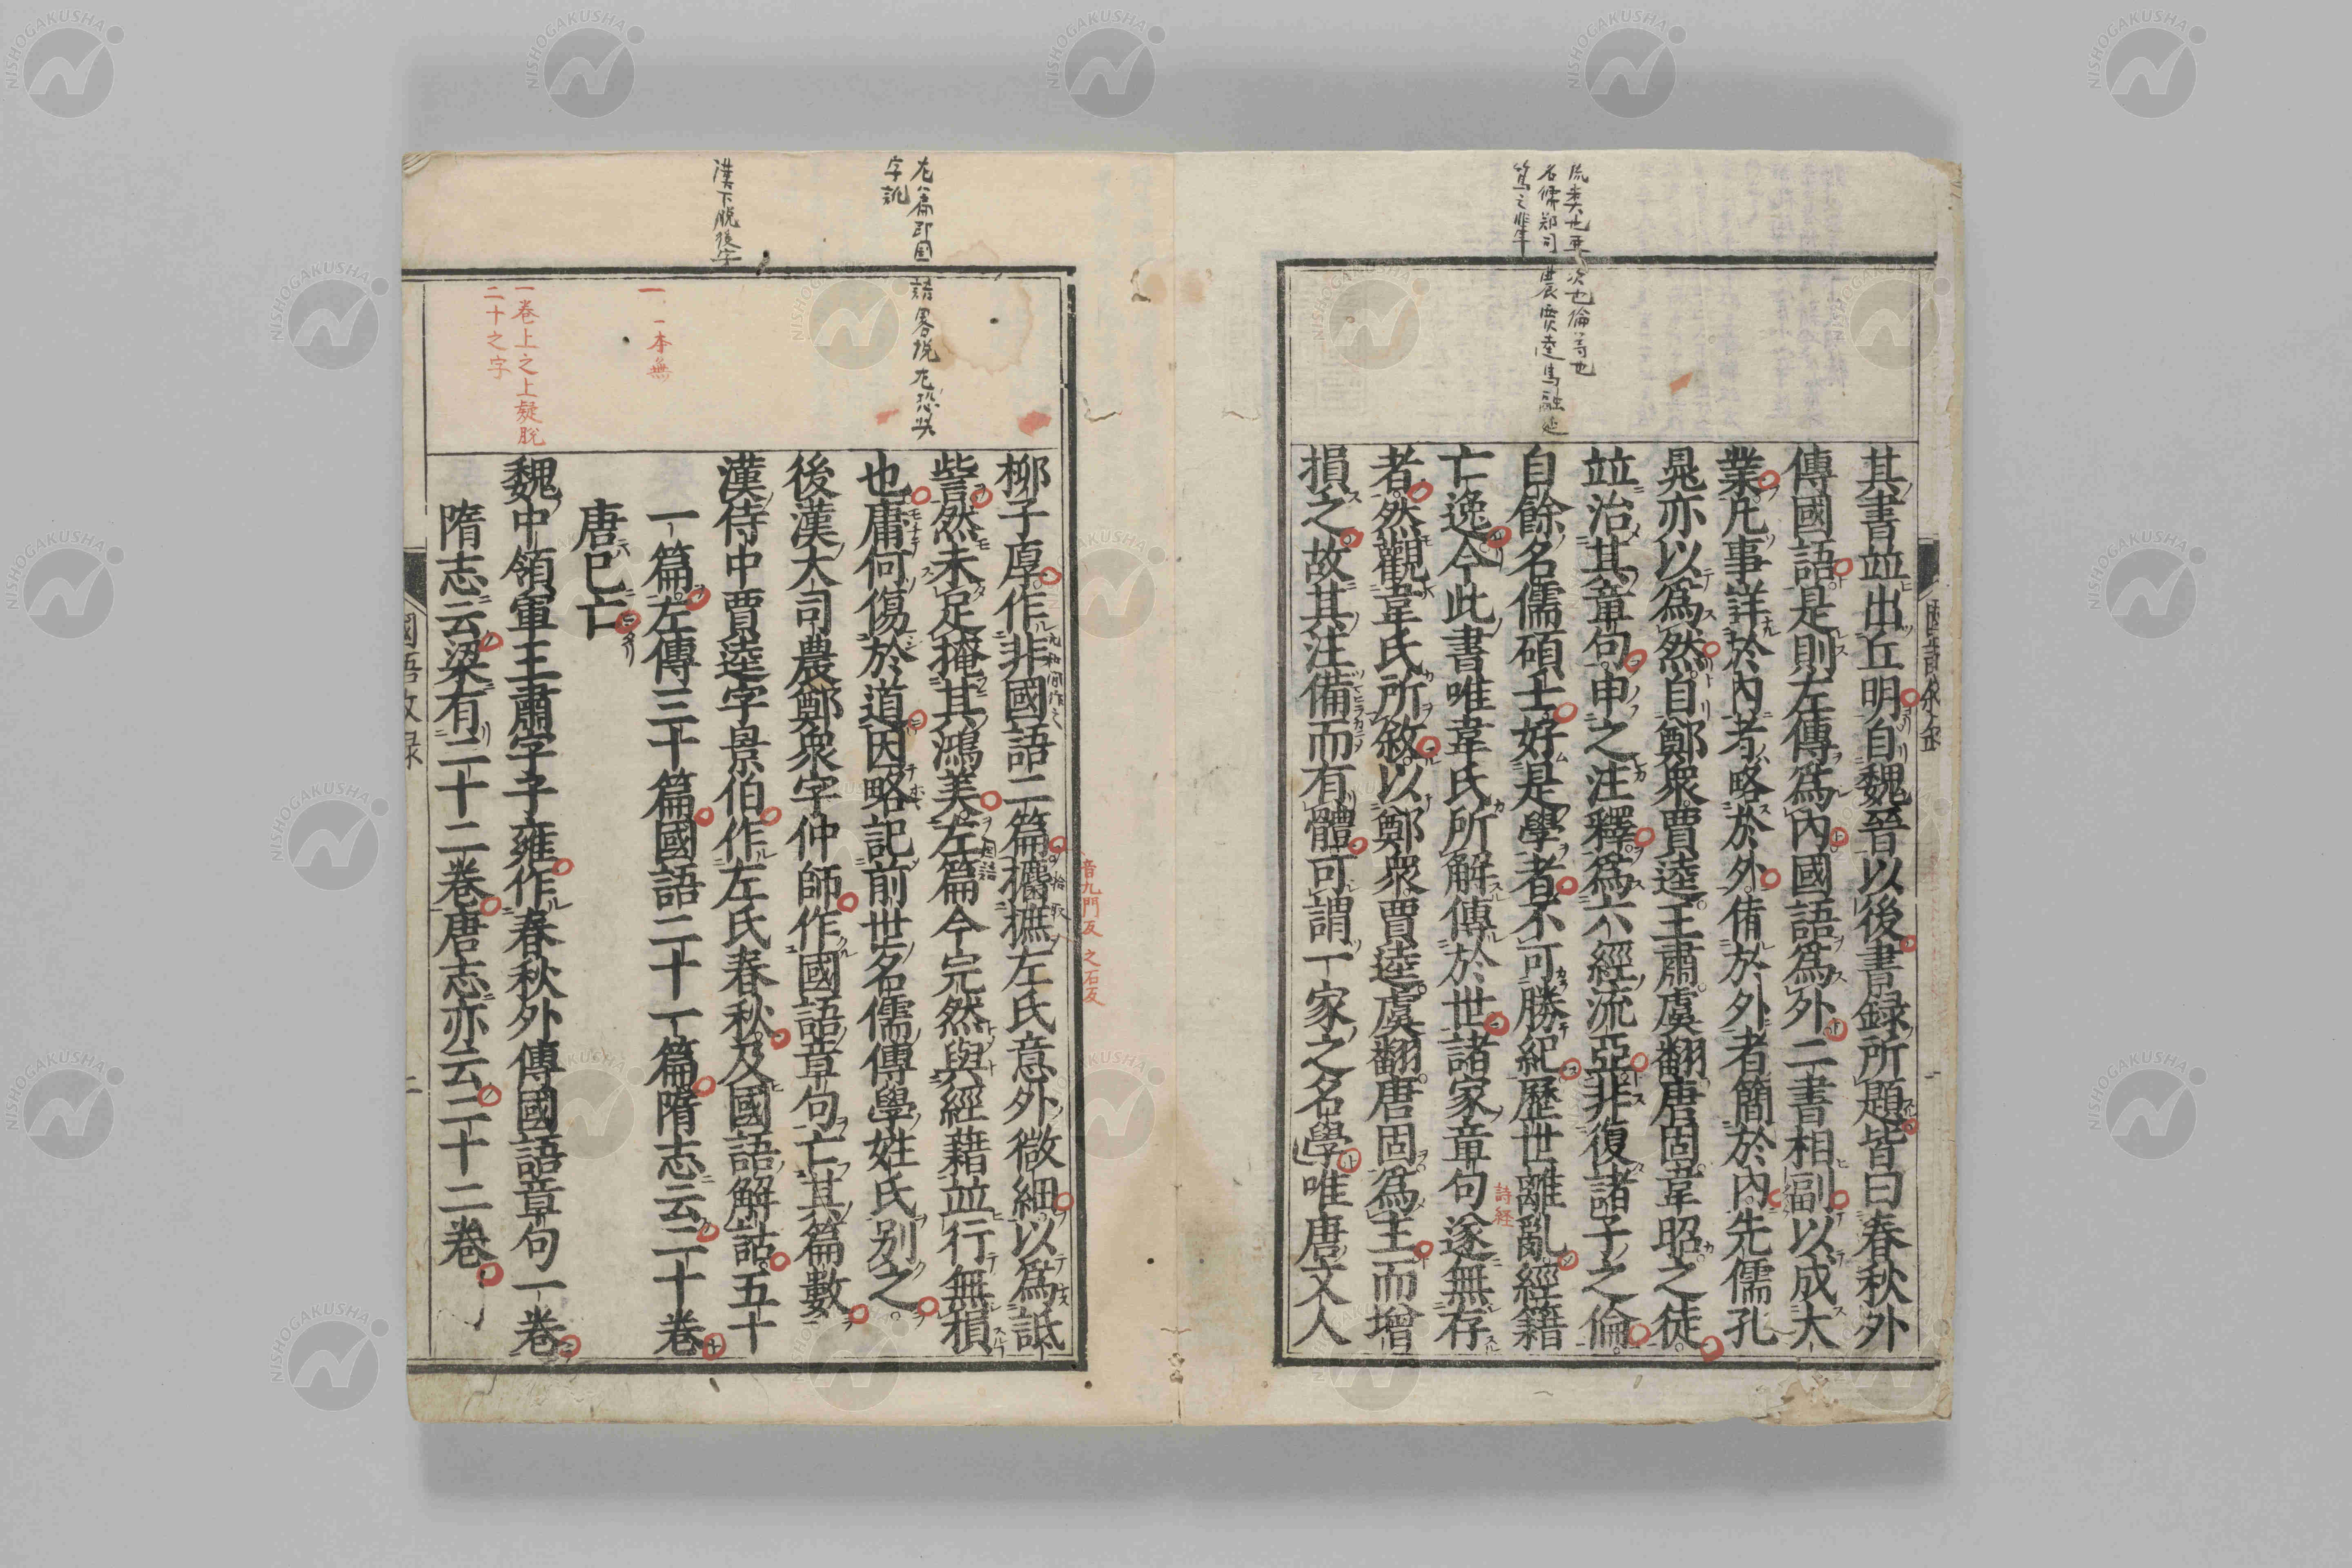 其書並出丘明自魏晉以後書録所題皆曰春秋外
傳國語是則左傳爲內國語爲外二書相副以成大
業凡事詳於內者略於外俻於外者簡於內先儒孔
晁亦以爲然自鄭衆賈逵王肅虞翻唐固韋昭之徒
並治其章句申之注釋爲六經流亞非復諸子之倫
自餘名儒碩士好是學者不可勝紀歷世離亂經籍
亡逸今此書唯韋氏所解傳於世諸家章句遂無存
者然觀韋氏所敘以鄭衆賈逵虞翻唐固爲主而增
損之故其注備而有體可謂一家之名學唯唐文人
流類也亜次也倫等也
名儒鄭司農賈逵馬融延
篤之非年
詩経
柳子厚作非國語二篇攟摭左氏意外微細以爲詆
訾然未足掩其鴻美左篇今完然與經藉並行無損
也庸何傷於道因略記前世名儒傳學姓氏別之
後漢大司農鄭衆字仲師作國語章句亡其篇數
漢侍中賈逵字景伯作左氏春秋及國語解詁五十
一篇左傳三十篇國語二十一篇隋志云二十卷
唐已亡
魏中領軍王肅字子雍作春秋外傳國語章句一卷
隋志云梁有二十二卷唐志亦云二十二卷
左篇即国語畧説左恐外
字訛
漢下脱後字
一 一本無
一卷上之上疑脱
二十之字
元和間作之
音九門反 之石反
拾取
国語
國語攷録
二